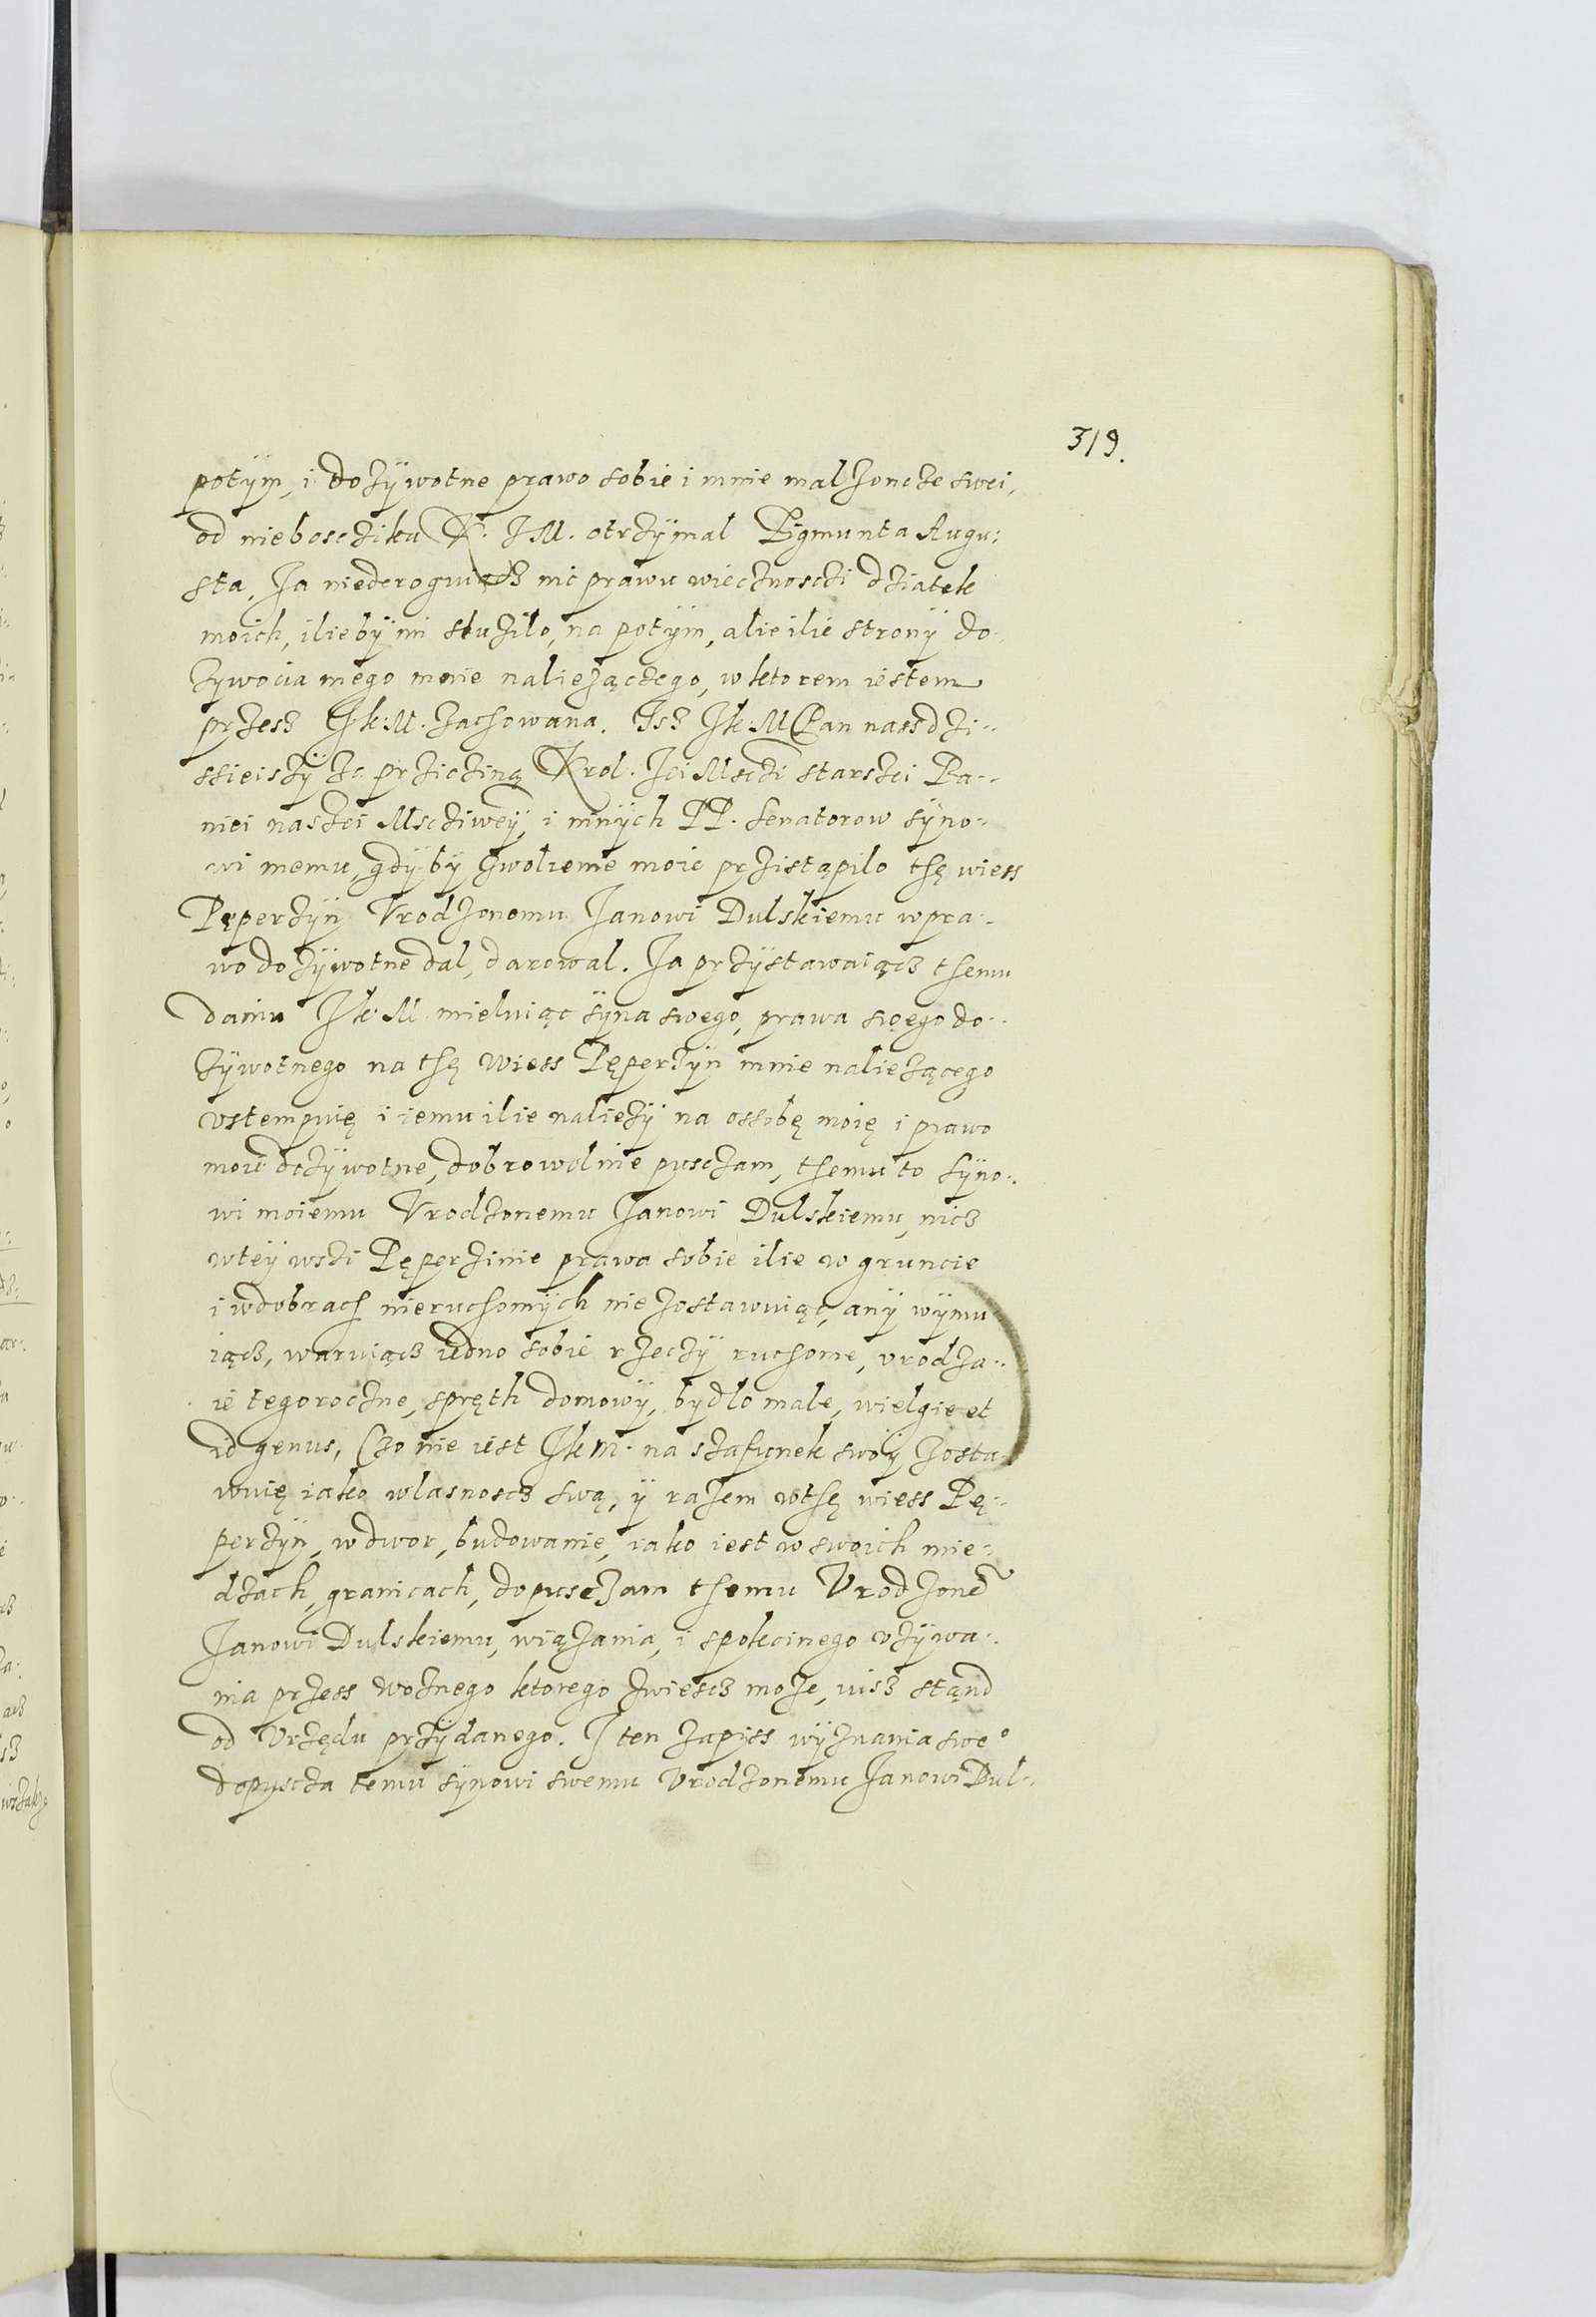 319.
potÿm, i dozÿwotne prawo sobie i mnie malzoncze swei,
od niebosczika K. J M. otrzÿmal Zigmunta Augu:
sta, Ja niederoguiącz nic prawu wiecznosczi dziatek
moich, ilie bÿ mi sluzilo, na potÿm, alie ilie stronÿ do-
zywocia mego mnie naliezączego, w ktorem iestem
przesz Jk: M. zachowana. Isz Jk: M Pan nass dzi--
ssieiszÿ za prziczina Krol. Jei Msczi starszei Pa--
niei naszei Msciwey, i ninÿch PP. senatorow sÿno-
wi memu, gdÿ bÿ zwolienie moie przistąpilo thę wiess
Pęperzÿn Vrodzonemu Janowi Dulskiemu w pra-
wo dozÿwotne dal, darowal. Ja przÿstawaiącz themu
daniu Jk: M. mieluiąc sÿna swego, prawa swego do-
zÿwotnego na thę wiess Pęperzÿn mnie naliezącego
vstempuię i iemu ilie naliezÿ na ossobę moię i prawo
moie dozÿwotne, dobrowolnie pusczam, themu to sÿno-
wi moiemu Vrodzonemu Janowi Dulskiemu, nicz
w teÿ wszi Pęperzinie prawa sobie ilie w gruncie
i w dobrach nieruchomÿch nie zostawuiąc, anÿ wÿmu
iącz, waruiącz iedno sobie rzeczÿ ruchome, vrodza-
ie tegoroczne, spręth domowÿ, bydlo male, wielgie et
id genus, Czo nie iest Jk M. na szafunek swoÿ zosta-
wuię iako wlasnoscz swą, ÿ razem w thę wiess Pę-
perzÿn, w dwor, budowanie, iako iest w swoich mie-
dzach, granicach, dopusczam themu Vrodzone
Janowi Dulskiemu, wiązania, i spokoinego vzÿwa-
nia przess woznego ktorego zwiescz moze, visz stąnd
od Vrzędu przÿdanego. J ten zapiss wÿznania swe°
dopuscza temu sÿnowi swemu Vrodzonemu Janowi Dul-